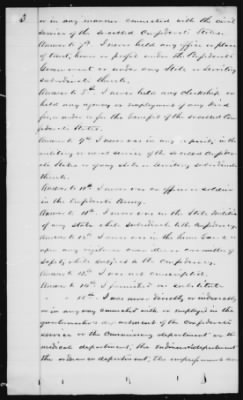 3
or in any manner connected with the civil
service of the so called Confederate States.
Answer to 7th I never held any office or place
of trust, honor or profit under the Confederate
Government or under any State or Territory
subordinate thereto.
Answer to 8th I never held any clerkship or
held any agency or employment of any kind
from under or for the benefit of the so called Con-
federate States.
Answer to 9th I never was in any capacity in the
military or naval service of the so called Confede-
rate States or of any state or territory subordinate
thereto.
Answer to 10th I never was an officer or soldier
in the Confederate Army.
Answer to 11th I never was in the State Militia
of any state while subordinate to the Confederacy.
Answer to 12th I never was in the home Guard or
upon any vigilance committee or committee of
safety while subject to the Confederacy.
Answer to 13th I was not conscripted.
Answer to 14th I furnished no substitute
" " 15th I was never directly or indirectly
or in any way connected with or employed in the
quartermasters department of the Confederate
service or the Commissary department or the
medical department, the ordnance department
the